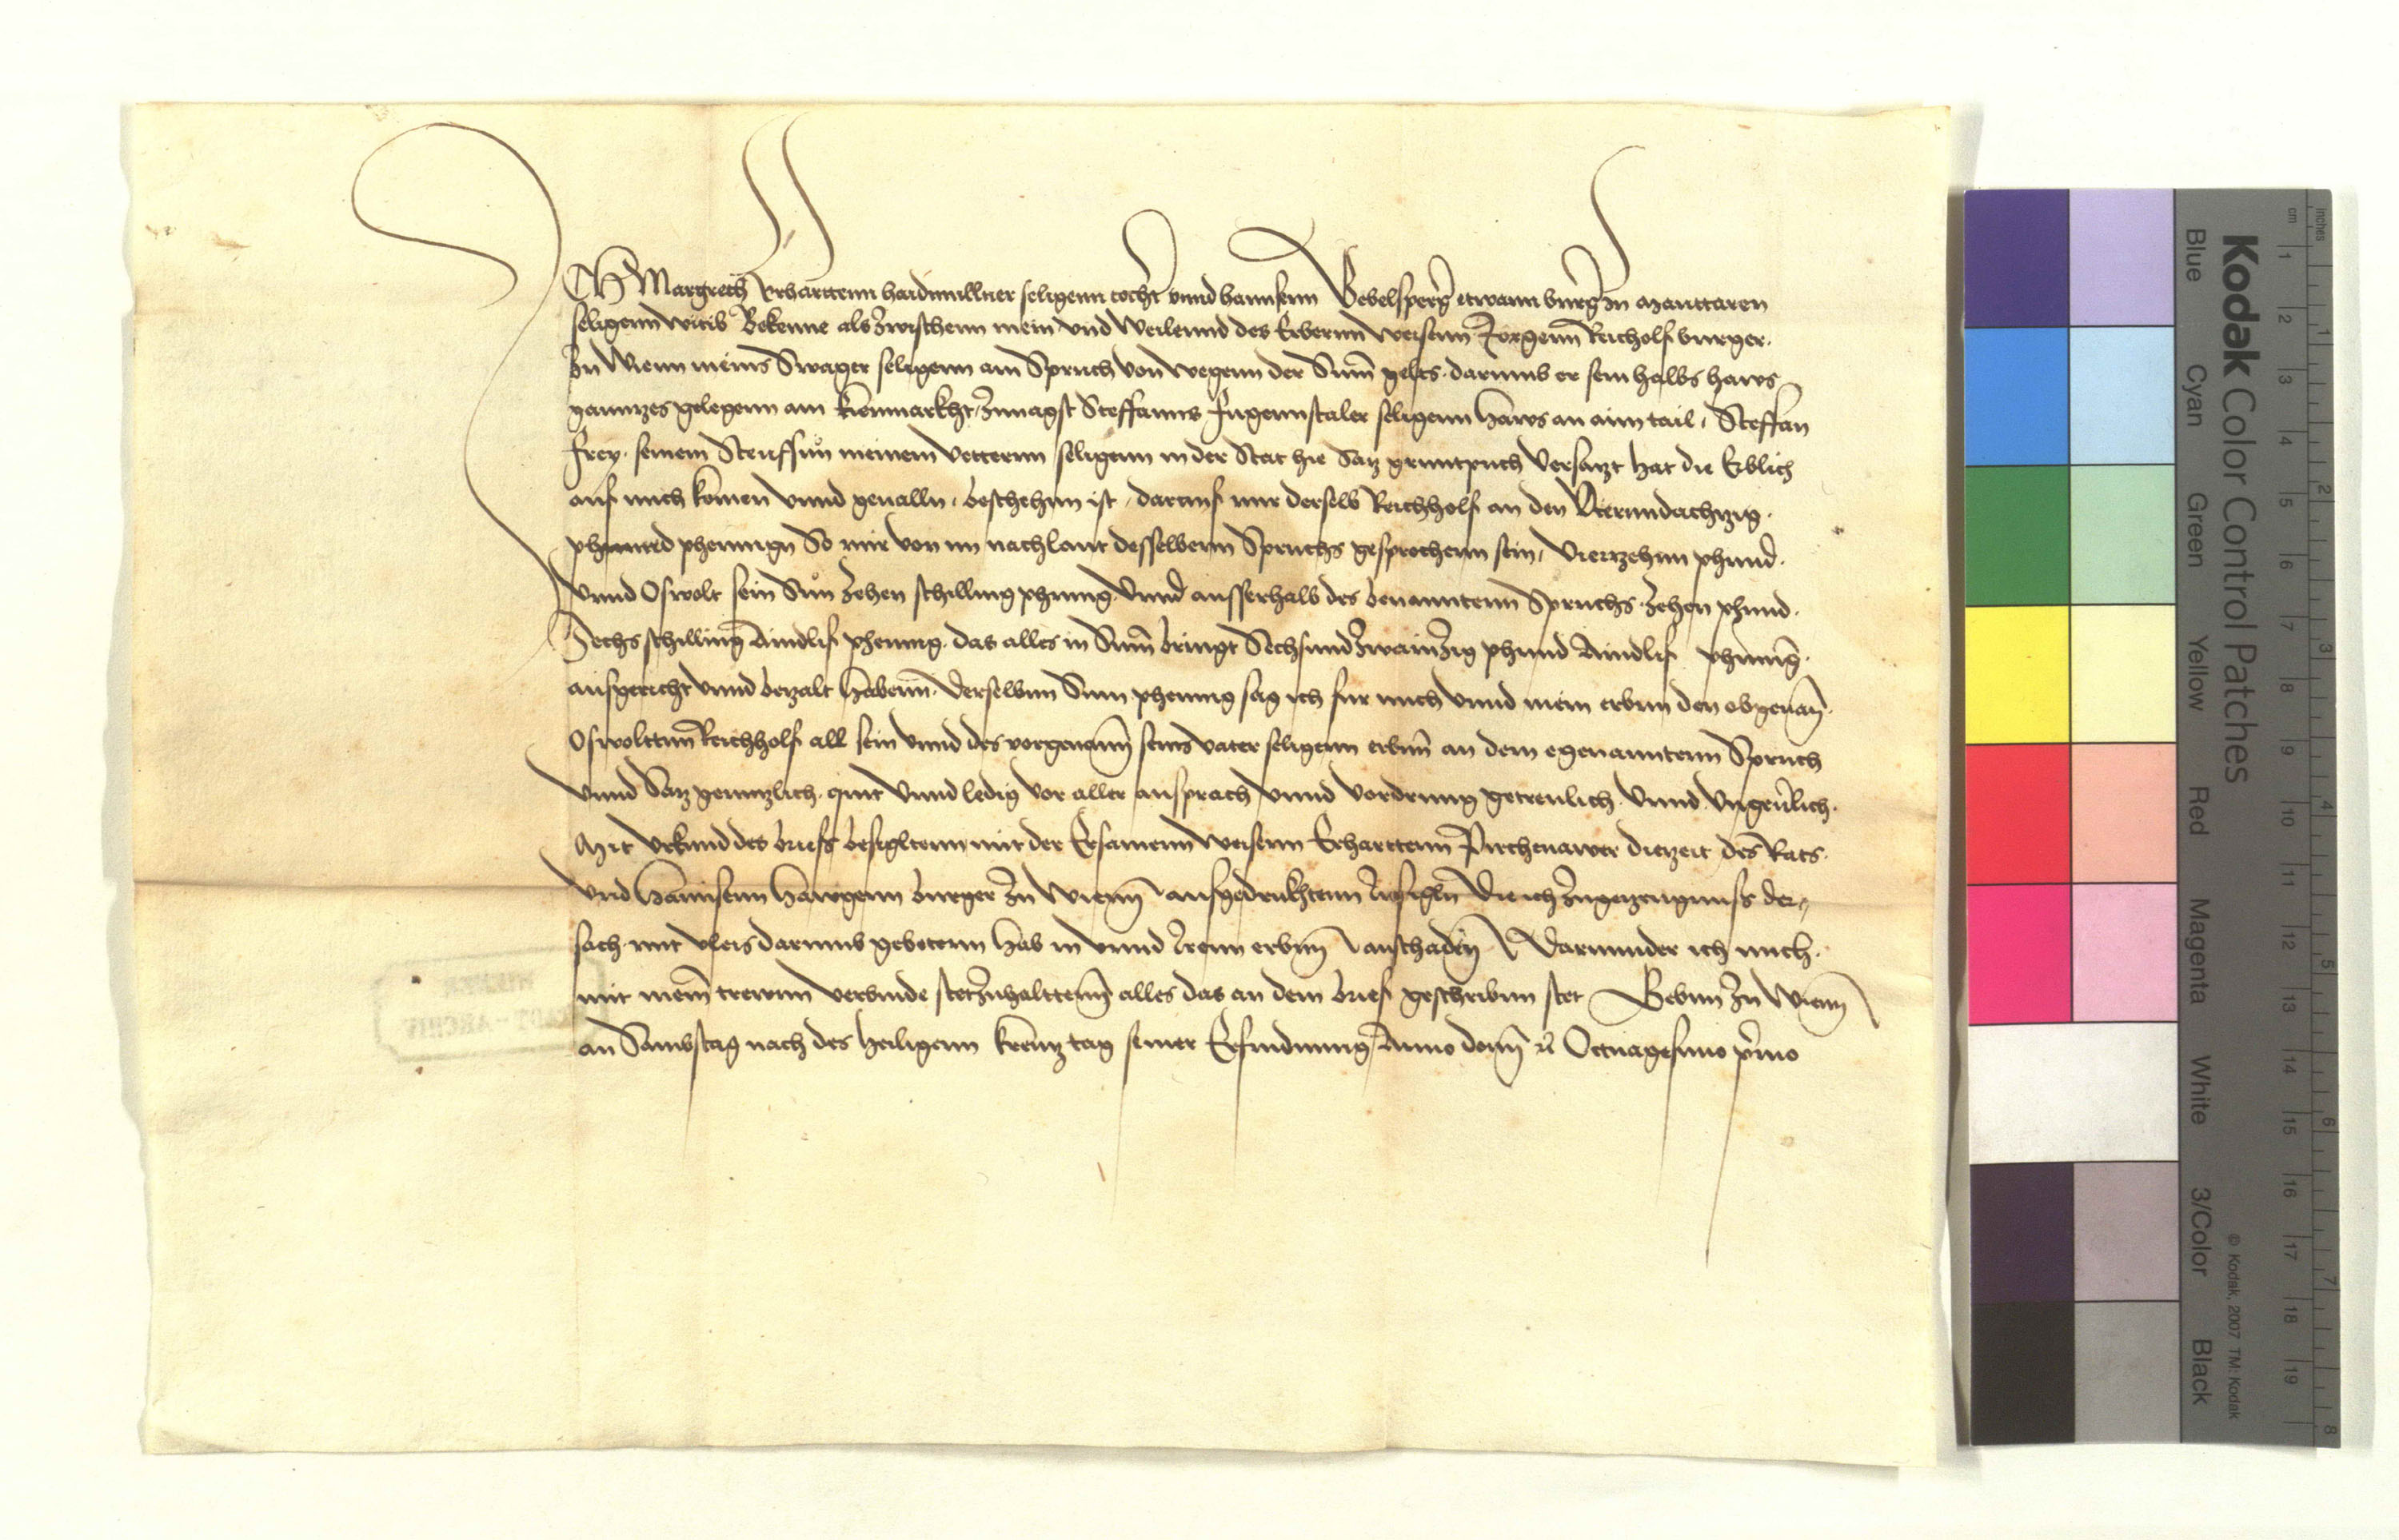 ICH Margreth Erharttenn haidmullner seligenn tocht vnnd hannsenn Gebelsperg etwann burg zu Mauttaren
seligenn witib Bekenne als zwischenn mein vnd Weilennd des Erbernn weisenn Jorgenn Reicholf burger.
zu Wienn meins Swager seligenn ain Spruch von wegenn der Sum gelts. darumb er sein halbs haws
ganntzes gelegenn am kienmarkht zunagst Steffanns seligenn haws an aim tail, Steffan
Frey. seinem Steufsun meinem vetternn seligenn in der Stat hie Satz gruntpuch versatzt hat die Erblich
auf mich komen vnnd geualln. beschehenn ist, darauf mir derselb Reichholf an den Vierundachtzig.
phunnd phenning So mir von im nachlaut desselbenn Spruchs gesprochenn sein, Vierzehenn phund.
Vnnd Oswolt sein Sun Zehen schilling phennig. Vnnd ausserhalb des benanntenn Spruchs. Zehen phund.
Sechs schilling Aindlif phennig. das alles in Sum bringt Sechsundzwainzig phund Aindlif phennig.
ausgericht vnnd bezalt habenn. Derselbnn Sum phennig sag ich fur mich vnnd mein erbnn den obgenan.
Oswolttnn Reichholf all sein vnnd des vorgenann seins vater seligenn erbnn an dem egenanntenn Spruch
vnnd Satz genntzlich. quit vnnd ledig vor aller ansprach vnnd vordrung getreulich. Vnnd. Vngeuerlich.
Mit vrkund des briefs besigltenn mit der Ersamenn weisenn Erharttenn Pirchenawer dieZeit des Rats.
vnd Hannsenn Hawgenn burger zu Wienn aufgedrukhtenn insigln Die ich zugezeugnuss der
sach. mit vleis darumb gebetenn hab in vnnd irenn erbnn anschaden Darunnder ich mich.
mit meinn trewnn verbinde stetzuhalttenn alles das an dem brief geschribnn stet Gebnn zu Wienn
an Sambstag nach des heiligenn kreutz tag seiner Erfindnung Anno domi etc Octuagesimo primo
WIENER
STADT-ARCHIV
Kodak Color Control Patches
Blue Cyan Green Yellow Red Magenta White 3/Color Black
© Kodak, 2007 TM: Kodak
cm 1 2 3 4 5 6 7 8 9 10 11 12 13 14 15 16 17 18 19
Inches 1 2 3 4 5 6 7 8